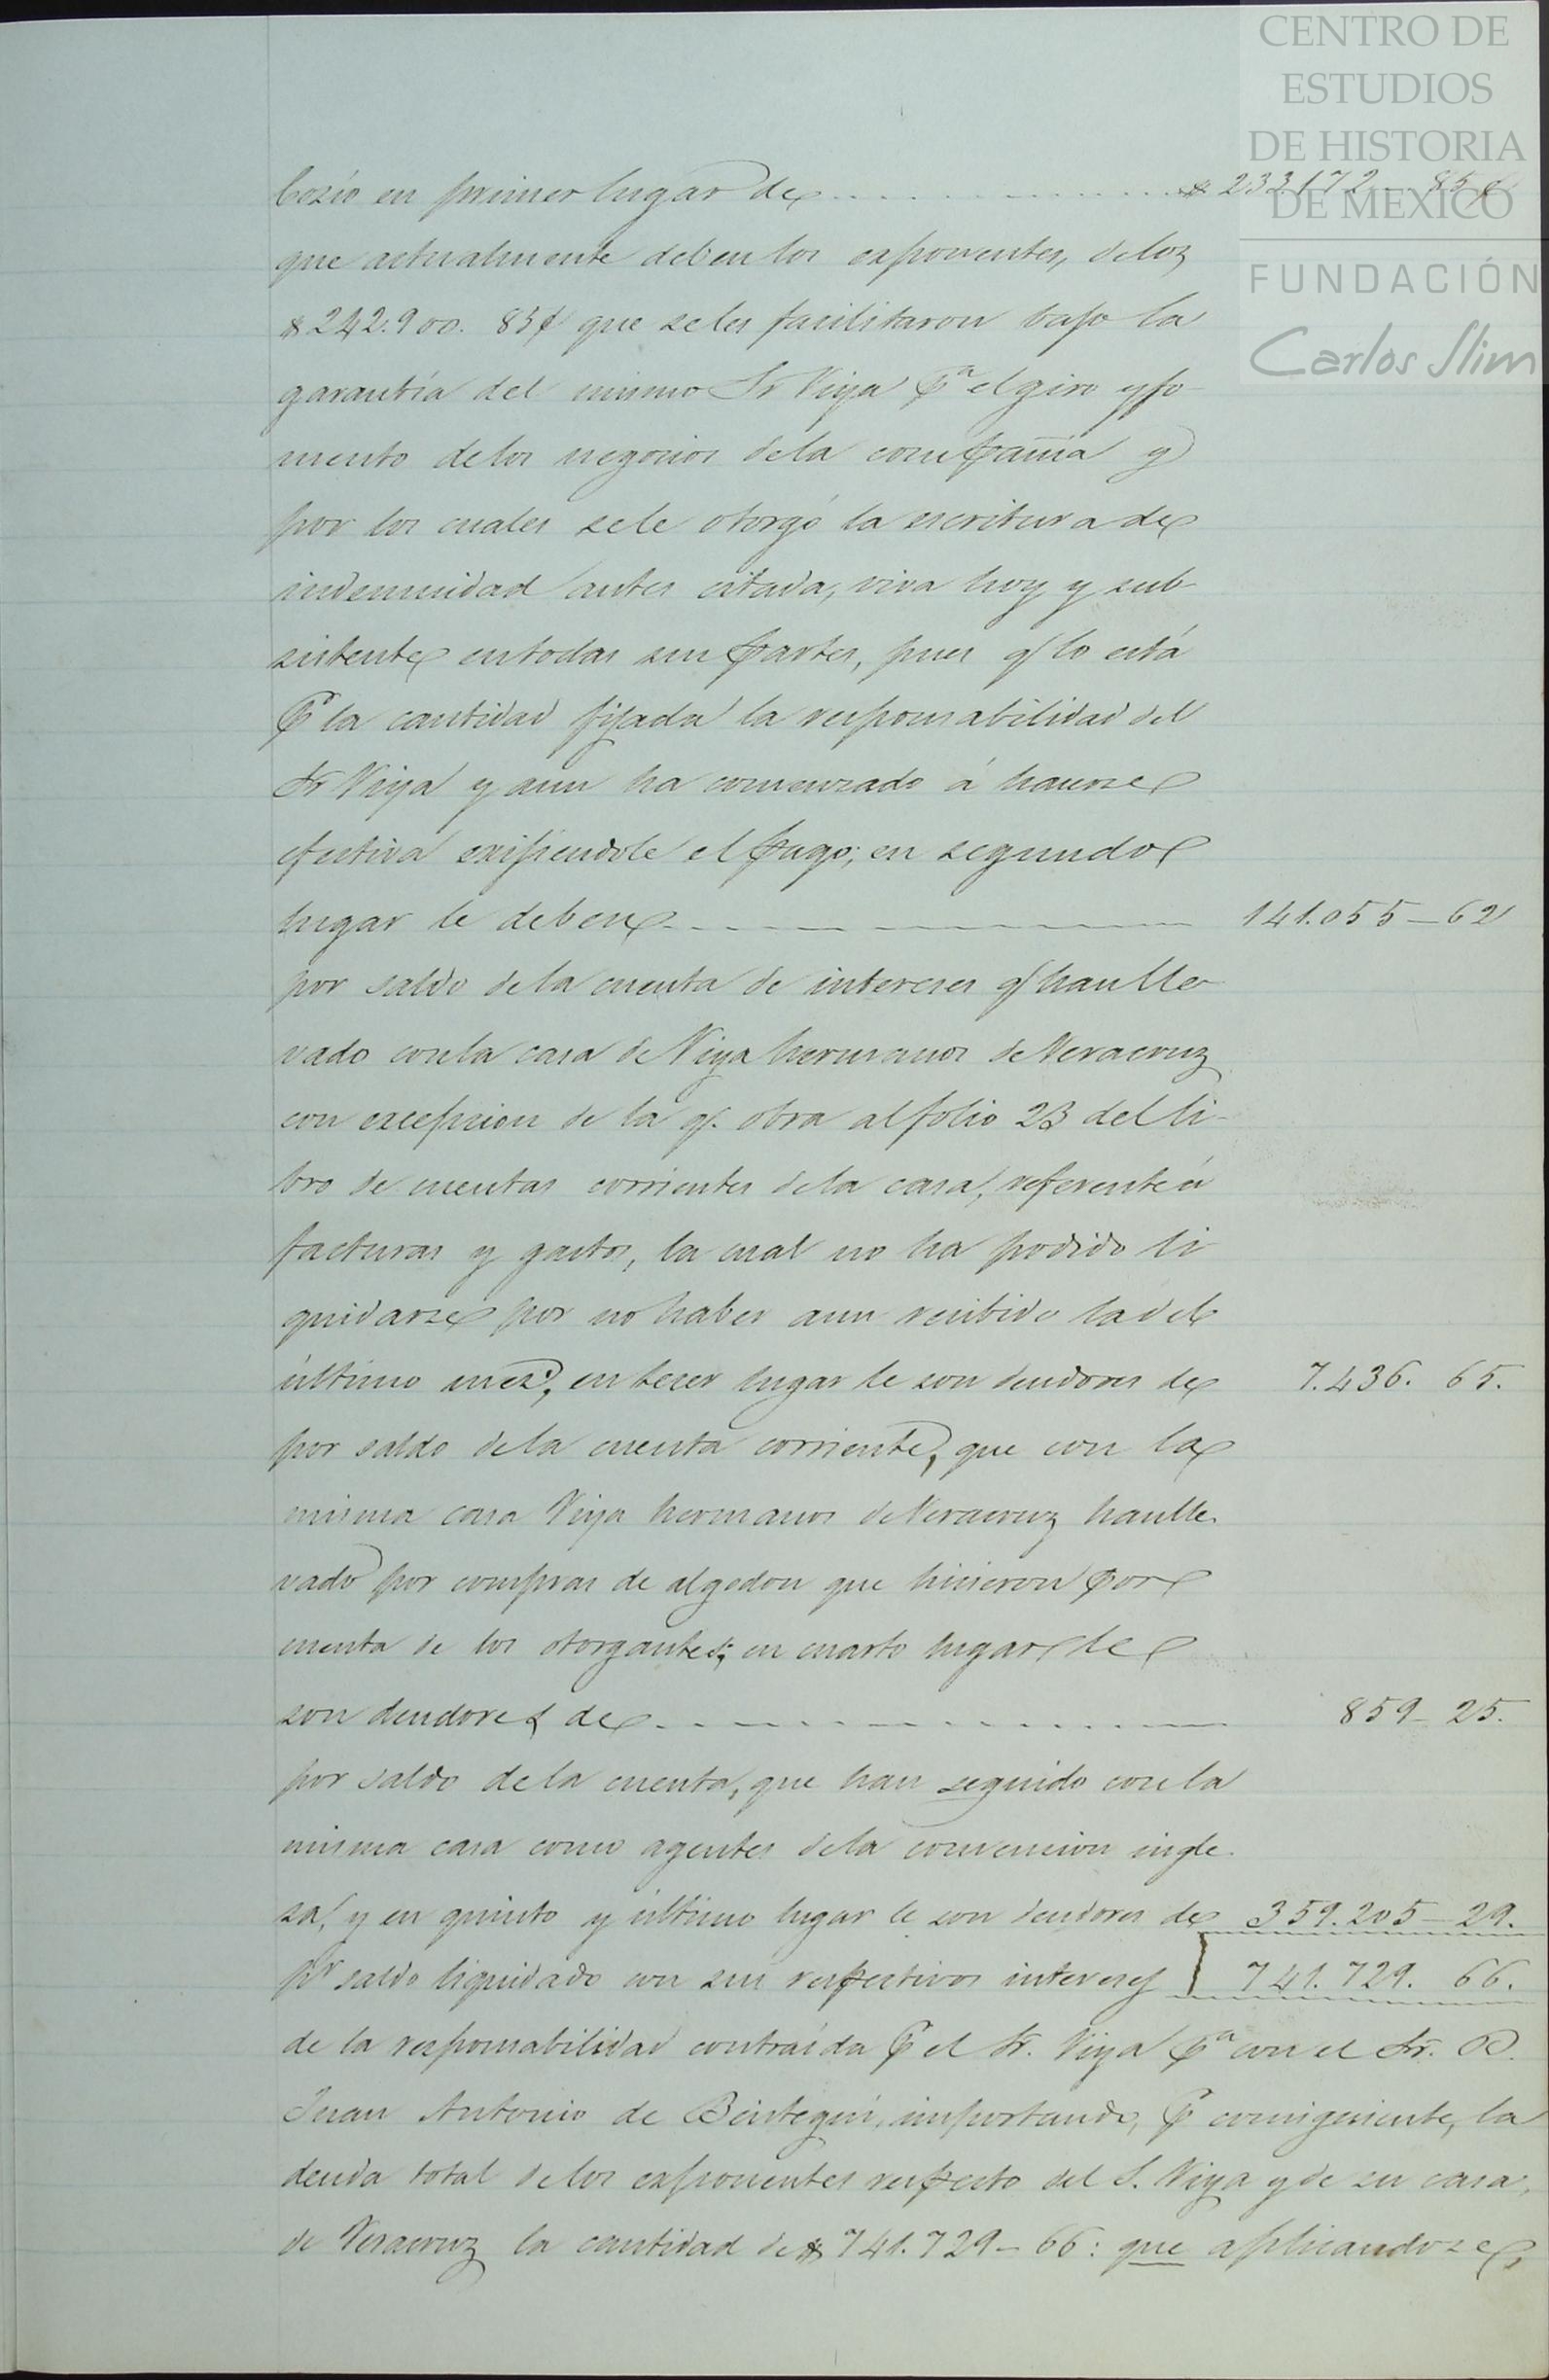 CENTRO DE
ESTUDIOS
DE HISTORIA
DE MEXICO
FUNDACIÓN
Carlos Slim
Cozío en primer lugar de $ 233.172 - 85 ¢
que actualmente deben los esponentes, de los
$ 242.900. 85¢ que se les facilitaron bajo la
garantía del mismo Sr Viya pa el giro y fo
mento de los negocios de la compañia y
por los cuales se le otorgó la escritura de
indemnidad antes citada, viva hoy y sub
sistente en todas sus partes, pues q lo está
p la cantidad fijada la responsabilidad del
Sr Viya y aun ha comenzado á hacerse
efectiva exijiendole el pago; en segundo
lugar le deben 141.055 - 62
por saldo de la cuenta de intereses q han lle
vado con la casa de Viya hermanos de Veracruz
con excepcion de la q. obra al folio 23 del li-
bro de cuentas corrientes de la casa, referente á
facturas y gastos, la cual no ha podido li
quidarse por no haber aun recibido la del
último mes, en tercer lugar le son deudores de 7.436. 65.
por saldo de la cuenta corriente, que con la
misma casa Viya hermanos de Veracruz han lle.
vado por compras de algodon que hicieron por
cuenta de los otorgantes; en cuarto lugar le
son deudores de 859 - 25.
por saldo de la cuenta, que han seguido con la
misma casa como agentes de la convencion ingle.
sa, y en quinto y último lugar le son deudores de 359.205 - 29.
pr saldo liquidado con sus respectivos intereses 741.729. 66.
de la responsabilidad contraída p el Sr. Viya pa con el Sr. D.
Juan Antonio de Beistegui, importando, p consiguiente, la
deuda total de los esponentes respecto del S. Viya y de su casa,
de Veracruz la cantidad de $ 741.729 - 66: que aplicandose,